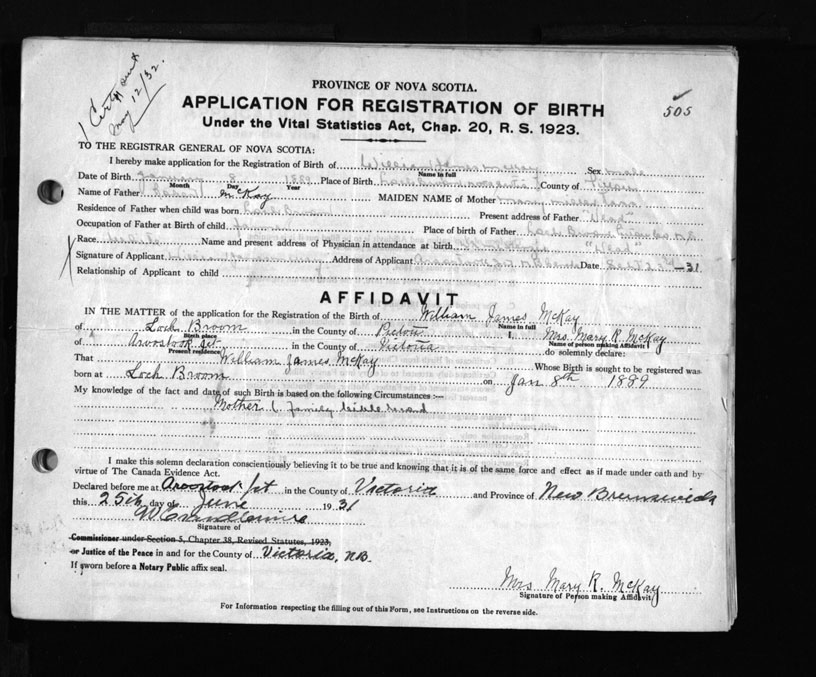 1 Cert
May 12/32.
505
PROVINCE OF NOVA SCOTIA.
APPLICATION FOR REGISTRATION OF BIRTH
Under the Vital Statistics Act, Chap. 20, R. S. 1923.
TO THE REGISTRAR GENERAL OF NOVA SCOTIA:
I hereby make application for the Registration of Birth of William Sex male
Name in full
Date of Birth January 8 1889 Place of Birth County of Pictou
Month Day Year
Name of Father McKay MAIDEN NAME of Mother Mary
Residence of Father when child was born Loch Broom Present address of Father "Dead"
Occupation of Father at Birth of child farmer Place of birth of Father Loch Broom
Race Name and present address of Physician in attendance at birth "Dead"
Signature of Applicant Address of Applicant Date 31
Relationship of Applicant to child
AFFIDAVIT
IN THE MATTER of the application for the Registration of the Birth of William James McKay
Name in full
of Loch Broom in the County of Pictou I, Mrs. Mary R. McKay
Birth place Name of person making Affidavit
of Aroostook Jct. in the County of Victoria do solemnly declare:
Present residence
That William James McKay Whose Birth is sought to be registered was
born at Loch Broom on Jan 8th 1889
My knowledge of the fact and date of such Birth is based on the following Circumstances :—
Mother & family bible record
I make this solemn declaration conscientiously believing it to be true and knowing that it is of the same force and effect as if made under oath and by
virtue of The Canada Evidence Act.
Declared before me at Aroostook Jct in the County of Victoria and Province of New Brunswick
this 25th day of June 1931
Signature of
Commissioner under Section 5, Chapter 38, Revised Statutes, 1923,
or Justice of the Peace in and for the County of Victoria, N.B.
If sworn before a Notary Public affix seal.
Mrs Mary R. McKay
Signature of Person making Affidavit
For Information respecting the filling out of this Form, see Instructions on the reverse side.